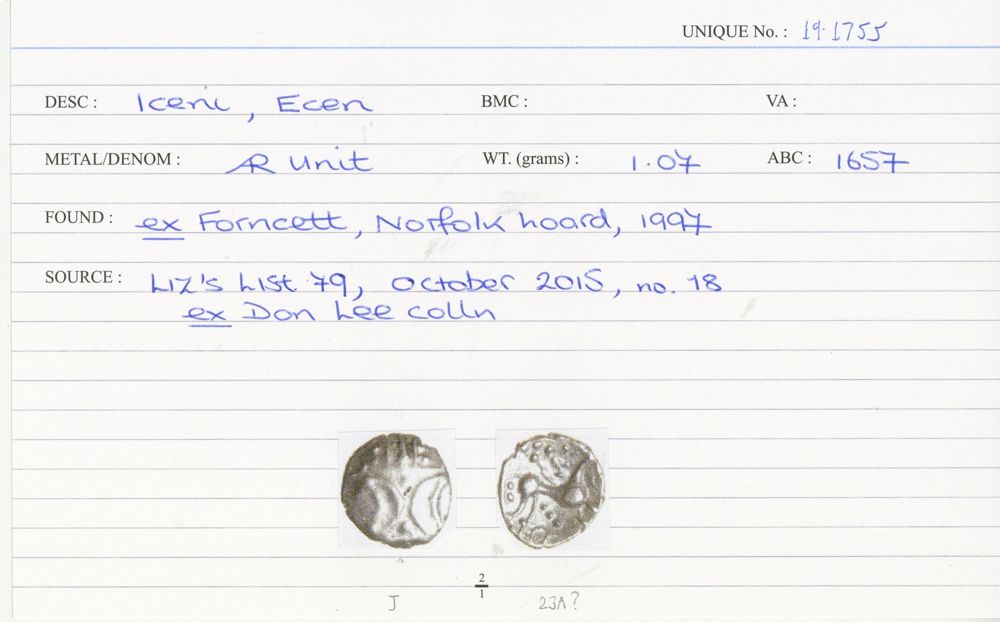 UNIQUE No. : 19.1755
DESC : Iceni, Ecen BMC : VA :
METAL/DENOM : AR unit WT. (grams) : 1.07 ABC : 1657
FOUND : ex Forncett, Norfolk hoard, 1997
SOURCE : Liz's List 79, October 2015, no. 18
ex Don Lee colln
2/1
J 23A?